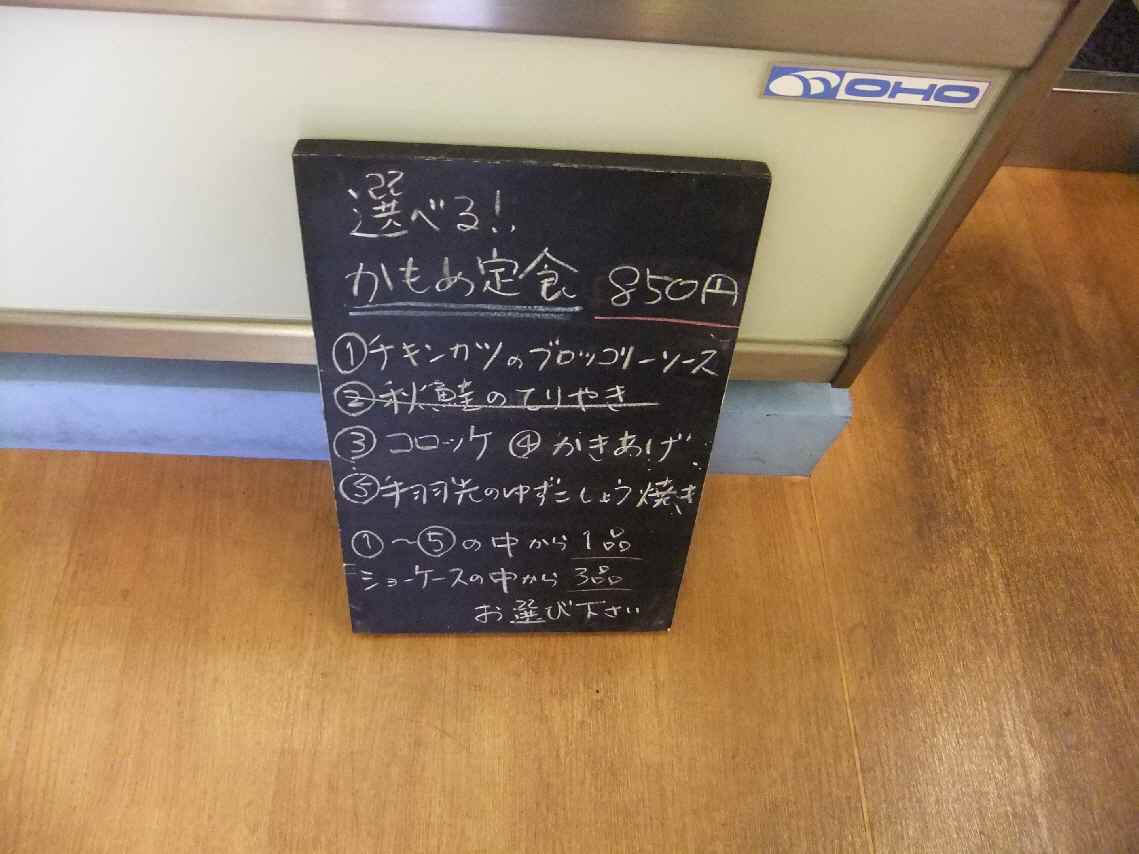 OHO
選べる!
かもめ定食 850円
①チキンカツのブロッコリーソース
②秋鮭のてりやき
③コロッケ ④かきあげ
⑤手羽先のゆずこしょう焼き
①～⑤の中から1品
ショーケースの中から3品
お選び下さい